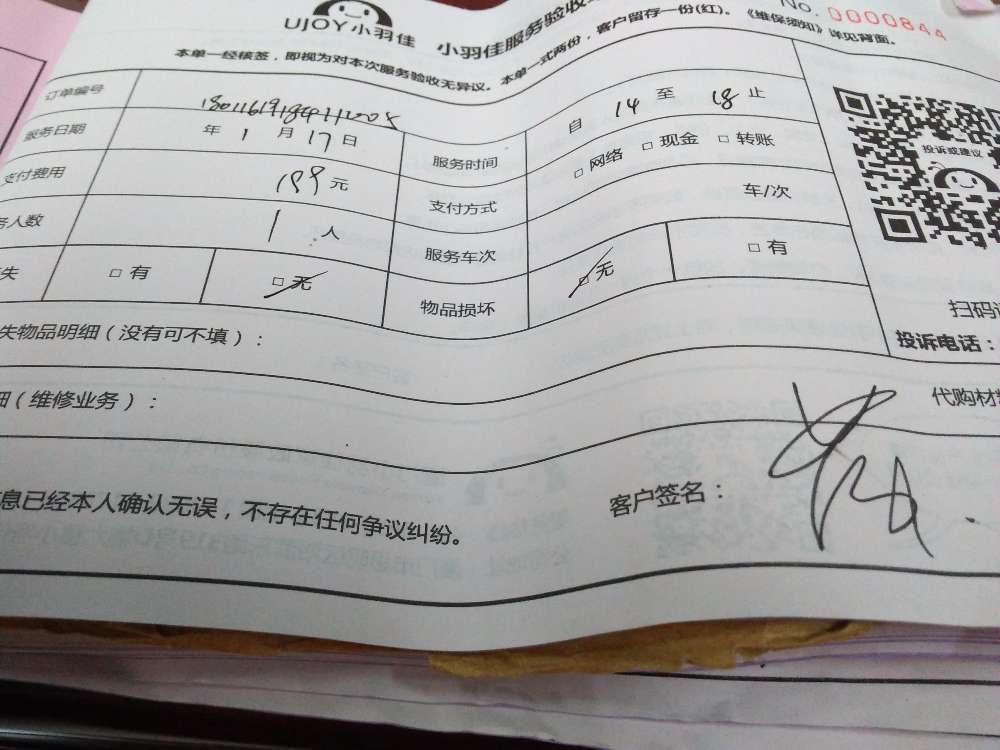 UJOY小羽佳 小羽佳服务验收
No. 0000844
本单一经核签，即视为对本次服务验收无异议。本单一式两份，客户留存一份(红)。《维保须知》详见背面。
订单编号
服务日期 年 1 月 17 日 服务时间 自 14 至 18 止
支付费用 199 元 支付方式 □ 网络 □ 现金 □ 转账
务人数 1 人 服务车次 车/次
失 □ 有 □ 无 物品损坏 □ 无 □ 有
投诉或建议
扫码
投诉电话：
失物品明细（没有可不填）：
细（维修业务）： 代购材
息已经本人确认无误，不存在任何争议纠纷。
客户签名：